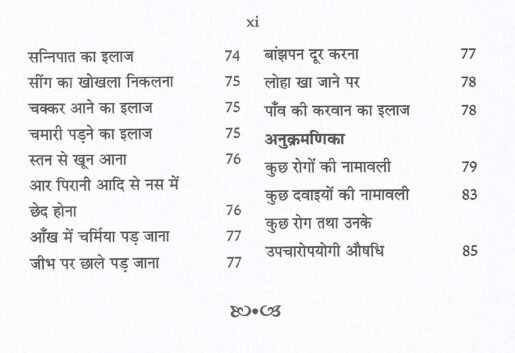 xi
सन्निपात का इलाज 74
सींग का खोखला निकलना 75
चक्कर आने का इलाज 75
चमारी पड़ने का इलाज 75
स्तन से खून आना 76
आर पिरानी आदि से नस में
छेद होना 76
आँख में चर्मिया पड़ जाना 77
जीभ पर छाले पड़ जाना 77
बांझपन दूर करना 77
लोहा खा जाने पर 78
पाँव की करवान का इलाज 78
अनुक्रमणिका
कुछ रोगों की नामावली 79
कुछ दवाइयों की नामावली 83
कुछ रोग तथा उनके
उपचारोपयोगी औषधि 85